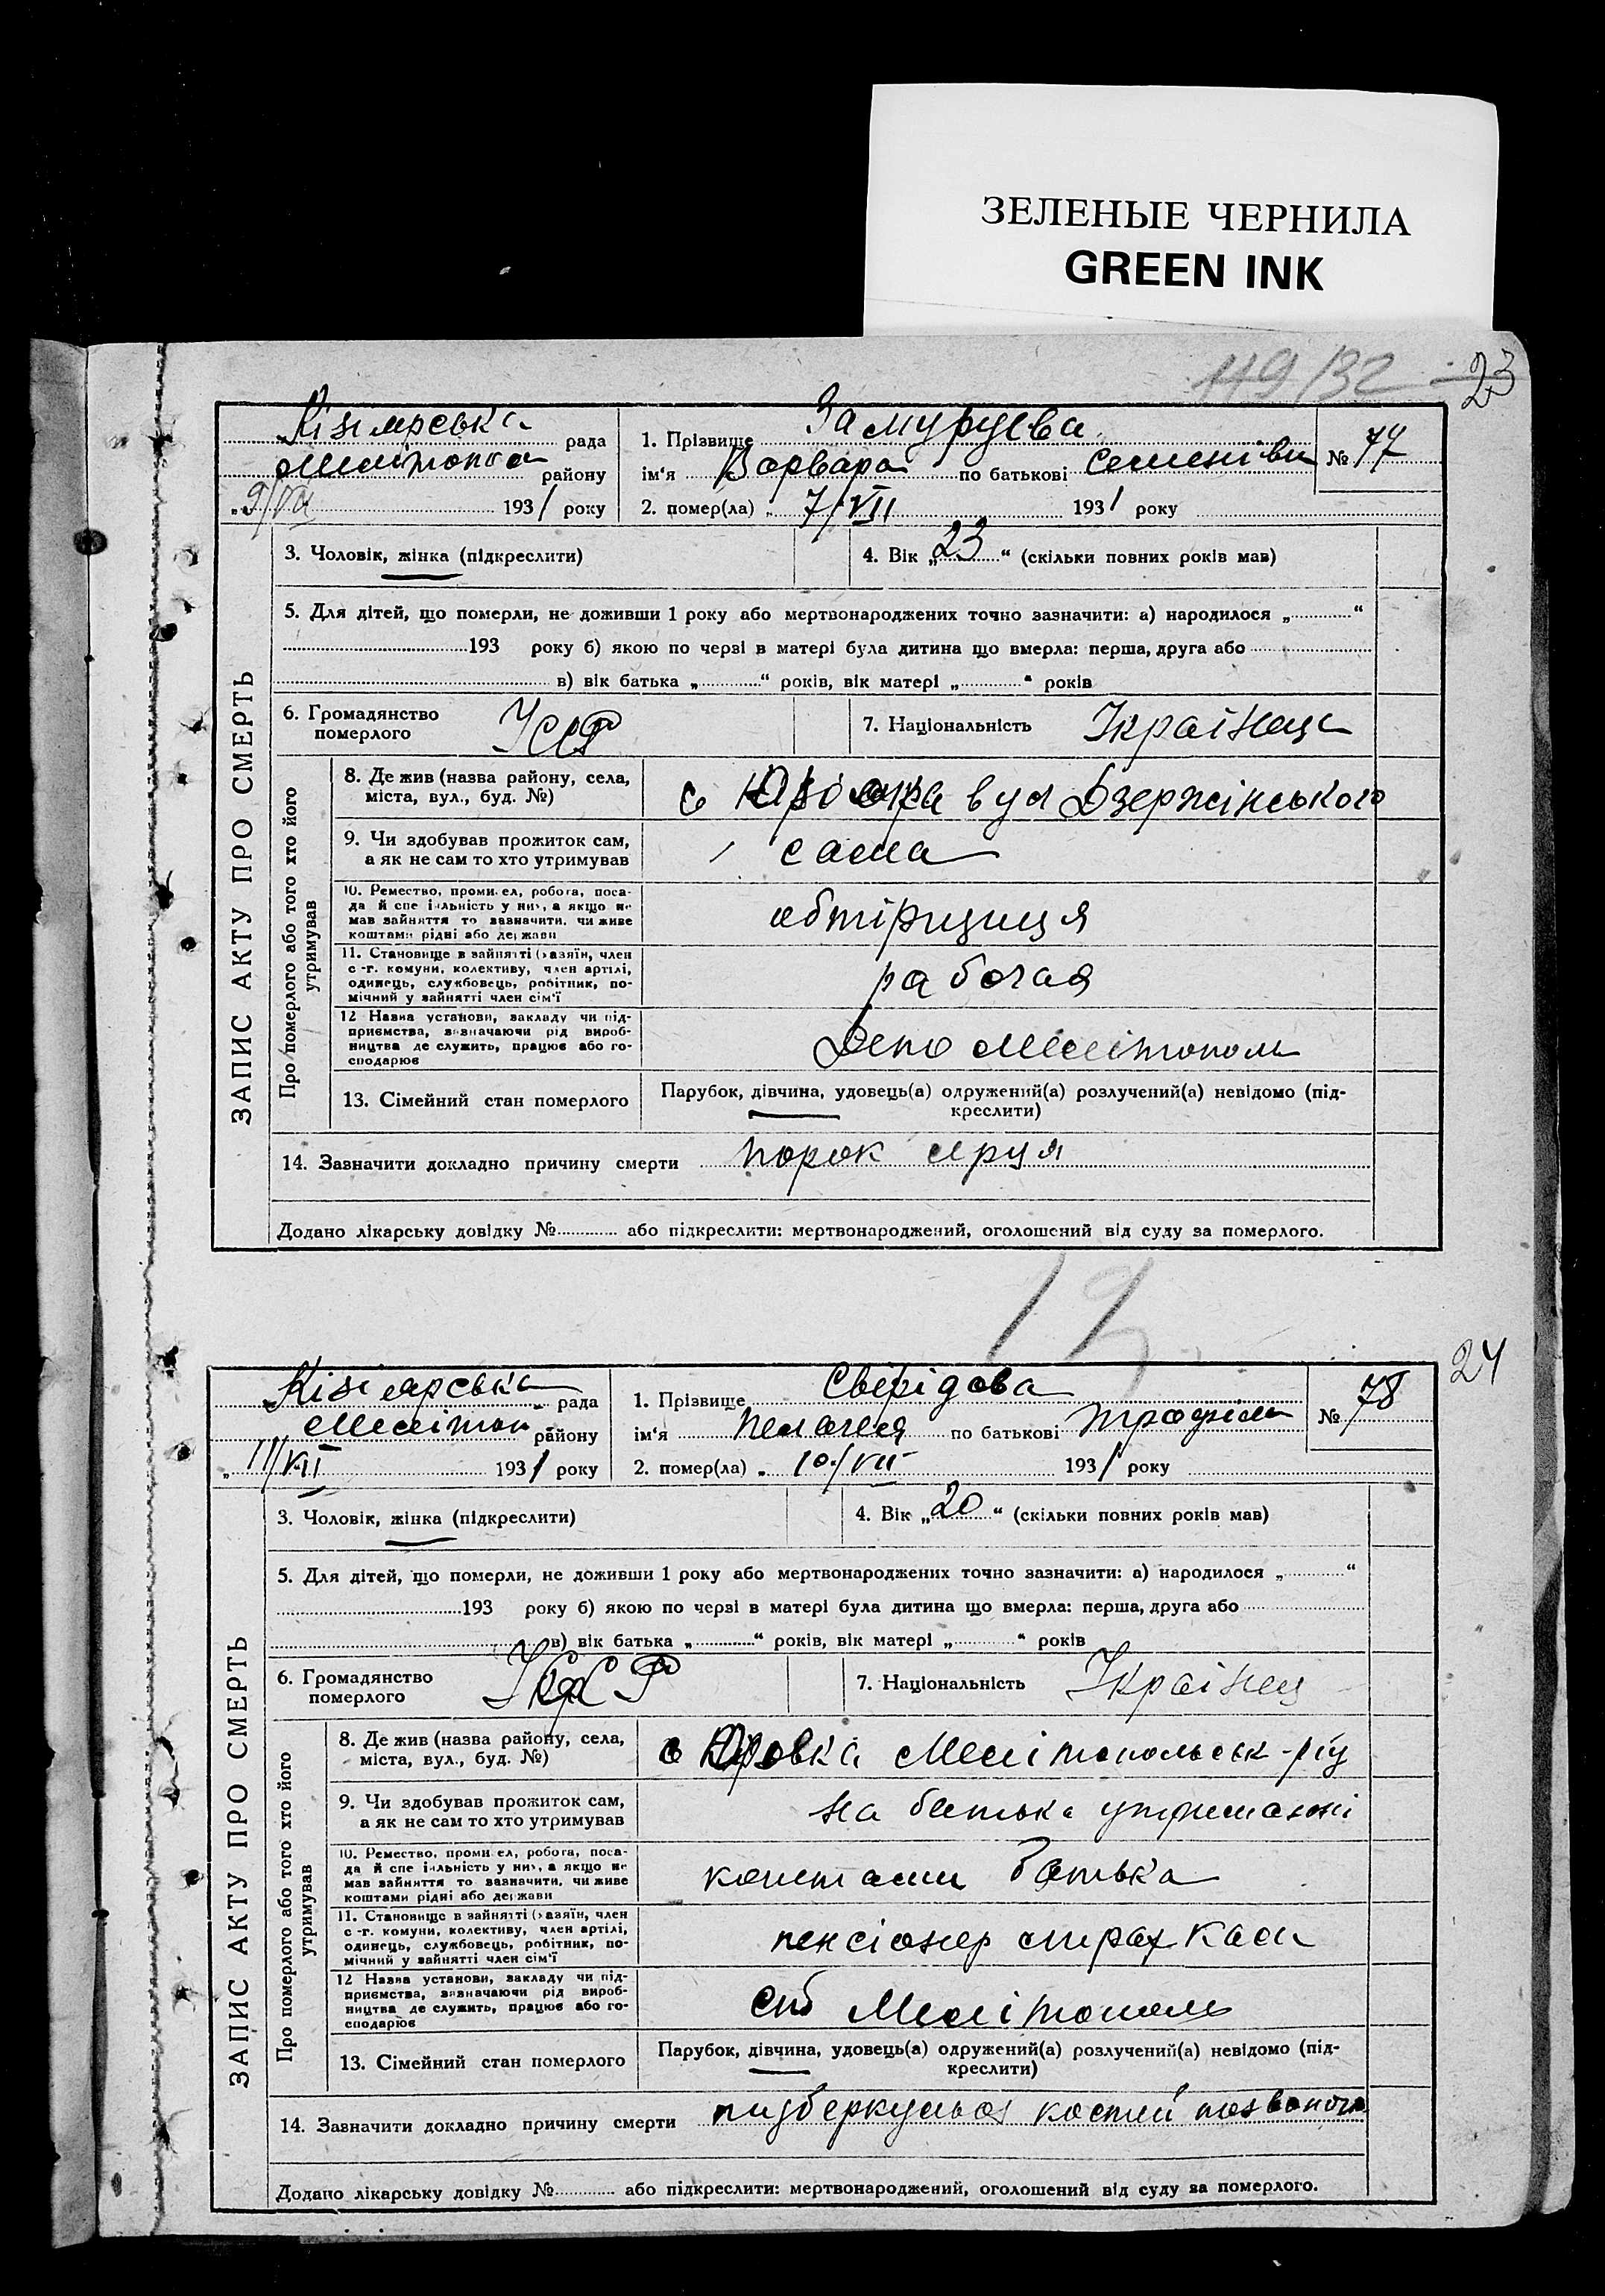 ЗЕЛЕНЫЕ ЧЕРНИЛА
GREEN INK
119/32
23
Кізіярська рада
1. Прізвище Замуруєва
№ 77
району
ім‘я Варвара по батькові Семенівн
9/VII 1931 року
2. помер(ла) „ 7/VII 1931 року
ЗАПИС АКТУ ПРО СМЕРТЬ
3. Чоловік, жінка (підкреслити)
4. Вік „23“ (скільки повних років мав)
5. Для дітей, що померли, не доживши 1 року або мертвонароджених точно зазначити: а) народилося „ “
193 року б) якою по черзі в матері була дитина що вмерла: перша, друга або
в) вік батька „ “ років, вік матері „ “ років
6. Громадянство
померлого
7. Національність Українц
Про померлого або того хто його
утримував
8. Де жив (назва району, села,
міста, вул., буд. №)
с вул Дзержінського
9. Чи здобував прожиток сам,
а як не сам то хто утримував
сама
10. Ремество, промисел, робота, поса-
да й спеціяльність у них, а якщо не
мав зайняття то зазначити, чи живе
коштами рідні або держави
обтірщиця
11. Становище в зайнятті (хазяїн, член
с.-г. комуни, колективу, член артілі,
одинець, службовець, робітник, по-
мічний у зайнятті член сім‘ї
рабочая
12 Назва установи, закладу чи під-
приємства, зазначаючи рід вироб-
ництва де служить, працює або го-
сподарює
Депо Мелітополь
13. Сімейний стан померлого
Парубок, дівчина, удовець(а) одружений(а) розлучений(а) невідомо (під-
креслити)
14. Зазначити докладно причину смерти порок
Додано лікарську довідку № або підкреслити: мертвонароджений, оголошений від суду за померлого.
19
24
Кізіярська рада
1. Прізвище Сверідова
№ 78
Меліто району
ім‘я Пелагея по батькові Трофім
„ 11/VII 1931 року
2. помер(ла) „ 10/VII 1931 року
ЗАПИС АКТУ ПРО СМЕРТЬ
3. Чоловік, жінка (підкреслити)
4. Вік „20“ (скільки повних років мав)
5. Для дітей, що померли, не доживши 1 року або мертвонароджених точно зазначити: а) народилося „ “
193 року б) якою по черзі в матері була дитина що вмерла: перша, друга або
в) вік батька „ “ років, вік матері „ “ років
6. Громадянство
померлого
7. Національність Українец
Про померлого або того хто його
утримував
8. Де жив (назва району, села,
міста, вул., буд. №)
с Мелітопольськ р-ну
9. Чи здобував прожиток сам,
а як не сам то хто утримував
на батька утриманні
10. Ремество, промисел, робота, поса-
да й спеціяльність у них, а якщо не
мав зайняття то зазначити, чи живе
коштами рідні або держави
коштами батька
11. Становище в зайнятті (хазяїн, член
с.-г. комуни, колективу, член артілі,
одинець, службовець, робітник, по-
мічний у зайнятті член сім‘ї
пенсіонер страх каси
12 Назва установи, закладу чи під-
приємства, зазначаючи рід вироб-
ництва де служить, працює або го-
сподарює
Мелітополь
13. Сімейний стан померлого
Парубок, дівчина, удовець(а) одружений(а) розлучений(а) невідомо (під-
креслити)
14. Зазначити докладно причину смерти туберкульоз костей позвоноч
Додано лікарську довідку № або підкреслити: мертвонароджений, оголошений від суду за померлого.